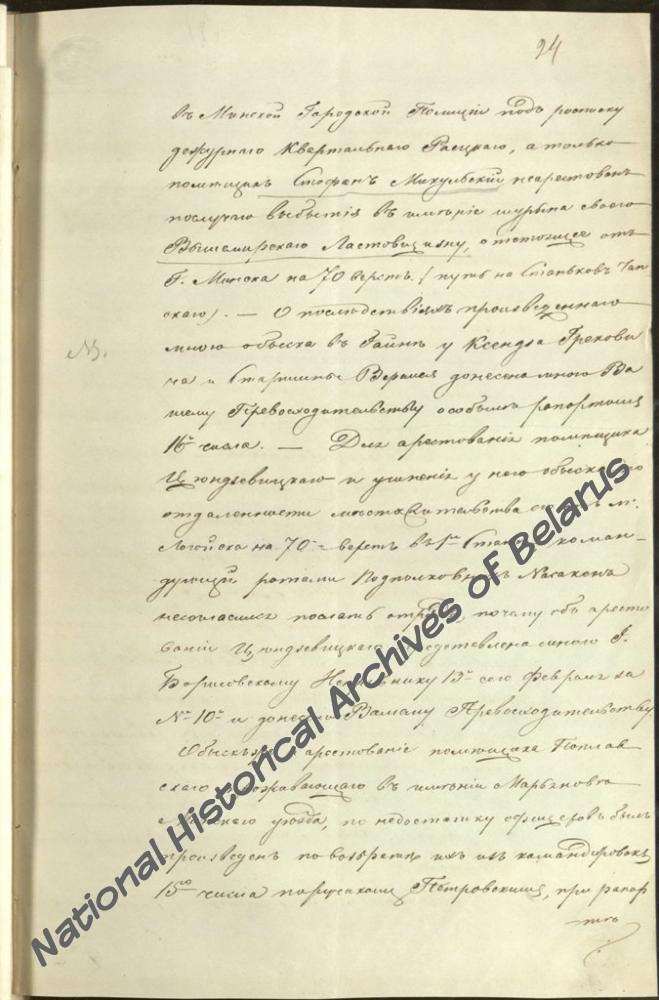 24
въ Минской Городской Полиціи подъ росписку
дежурнаго Квартальнаго Расцкаго, а только
помѣщикъ Стефанъ Микульскій неарестованъ
послучаю выбытія въ имѣніе шурына своего
Вышемирскаго Ластовищизну, отстоящее отъ
Г. Минска на 70 верстъ. (путь на Станьковъ Чап-
скаго). — О послѣдствіяхъ произведеннаго
№.
мною обыска въ Гайнѣ у Ксендза Грекови
ча и Старшины Веремея донесено мною Ва
шему Превосходительству особымъ рапортомъ
16го числа. — Для арестованія помѣщика
Цюндзевицкаго и учиненія у него обыска по
отдаленности мѣста жительства отъ м.
Логойска на 70 верстъ въ 1мъ Станѣ коман-
дующій ротами Подполковникъ
несогласился послать отрядъ, почему объ аресто
ваніи Цюндзевицкаго предоставлено мною Г.
Борисовскому Исправнику 13го сего Февраля за
№ 10м и донесено Вашему Превосходительству
Обыскъ и арестованіе помѣщика Поплав
скаго проживающаго въ имѣніи Марьяновка
Минскаго уѣзда, по недостатку офицеровъ былъ
произведенъ по возвратѣ ихъ изъ командировокъ
15го числа поручикомъ Петровскимъ, при рапор
тѣ
National Historical Archives of Belarus